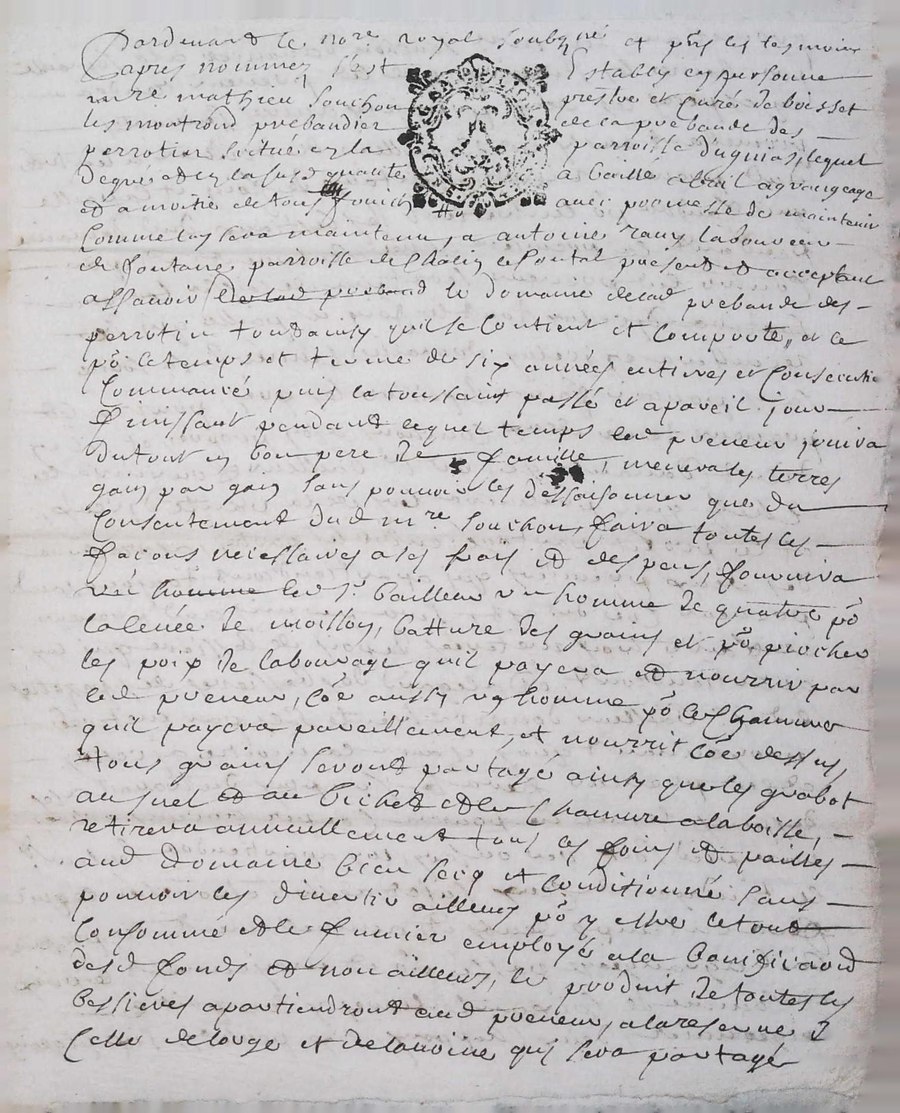 Pardevant le nore royal soubzne et pns les tesmoins
Capres nommez s'est Estably en personne
mre mathieu souchon prestre et curé de boisset
les montrond prebandier de la prebande des
perrotin scitue en la parroisse d'ugnias, lequel
De gre et a baille a bail a grangeage
et a moitie de tous avec promesse de maintenir
Comme luy sera maintenu, a antoine laboureur
de fontane parroisse de Chalin le Contal present et acceptant
assavoir le domaine de lad prebande des
perrotin tout ainsy quil se Contient et Comporte, et ce
po le temps et terme de six années entieres et Consecutive
Commancé puis la toussaint passé et a pareil jour
finissant pendant lequel temps led preneur jouira
du tout en bon pere de famille, menera les terres
gain par gain sans pouvoir les dessaisonner que du
Consentement dud mre souchon, faira toutes les
façons necessaires a ses frais et despens, fournira
homme led sr bailleur un homme de quatre po
la levée de moisson, batture des grains et po piocher
les poix de labourage quil payera et nourrir par
led preneur, Coe aussy un homme po le Chanvre
quil payera pareillement, et nourrit Coe dessus,
tous grains seront partagé ainsy que les grabot
au suel et au bichet et le Chanvre a la boille,
retirera annuellement tous les foins et pailles
aud domaine bien secq et Conditionné sans
pouvoir les divertir ailleurs po y estre le tout
Consommé et le fumier employé a la bonifica͠on
desd fonds et non ailleurs, le produit de toutes les
apartiendront aud preneur, a la reserve
Celle de lorge et de lavoine qui sera partagé